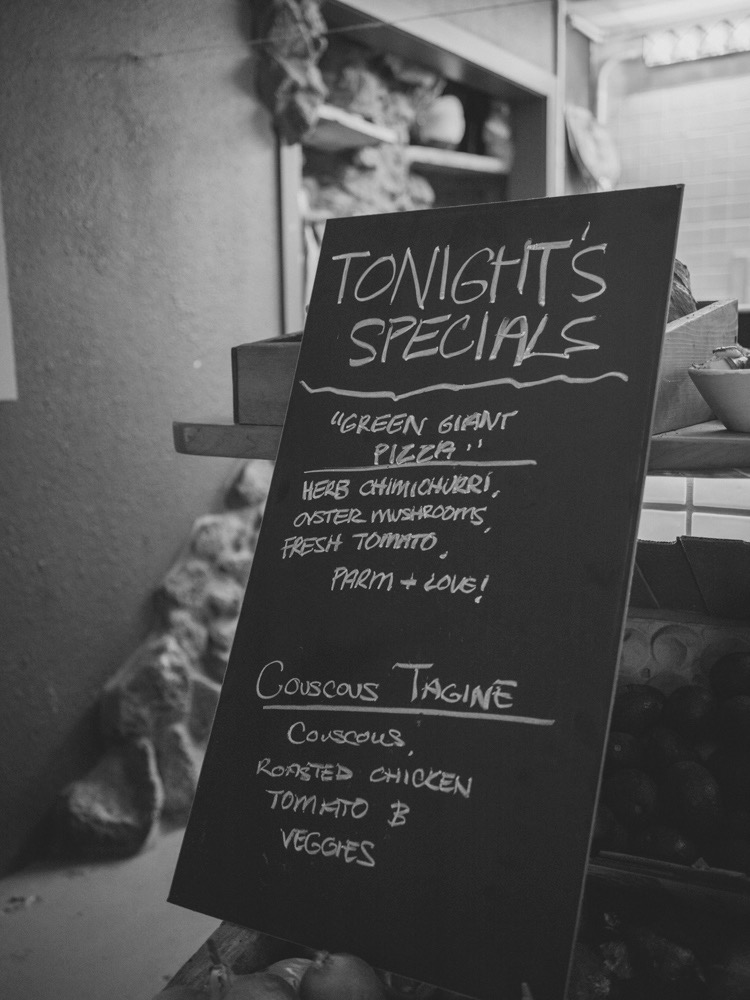 TONIGHT'S
SPECIALS
"GREEN GIANT
PIZZA"
HERB CHIMICHURRI,
OYSTER MUSHROOMS,
FRESH TOMATO,
PARM + LOVE!
COUSCOUS TAGINE
COUSCOUS,
ROASTED CHICKEN
TOMATO &
VEGGIES